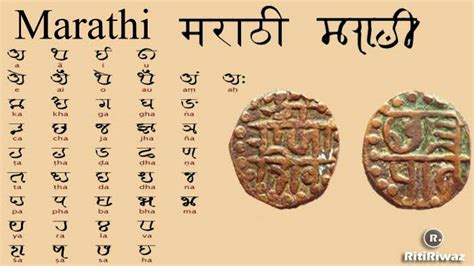 Marathi मराठी 𑘦𑘨𑘰𑘙𑘲
𑘀 𑘁 𑘃 𑘄
a ā i u
𑘊 𑘋 𑘌 𑘍 𑘀𑘽 𑘀𑘾
e ai o au aṃ aḥ
𑘎 𑘏 𑘐 𑘑 𑘒
ka kha ga gha ṅa
𑘓 𑘔 𑘕 𑘖 𑘗
ca cha ja jha ña
𑘘 𑘙 𑘚 𑘛 𑘜
ṭa ṭha ḍa ḍha ṇa
𑘝 𑘞 𑘟 𑘠 𑘡
ta tha da dha na
𑘢 𑘣 𑘤 𑘥 𑘦
pa pha ba bha ma
𑘧 𑘨 𑘩 𑘪
ya ra la va
𑘫 𑘬 𑘭 𑘮
śa ṣa sa ha
R.
RitiRiwaz